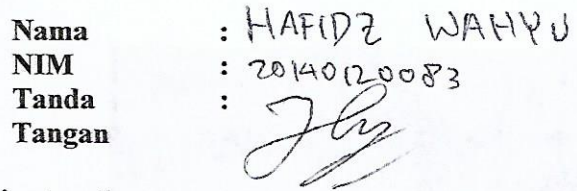 Nama : HAFIDZ WAHYU
NIM : 20140120083
Tanda :
Tangan